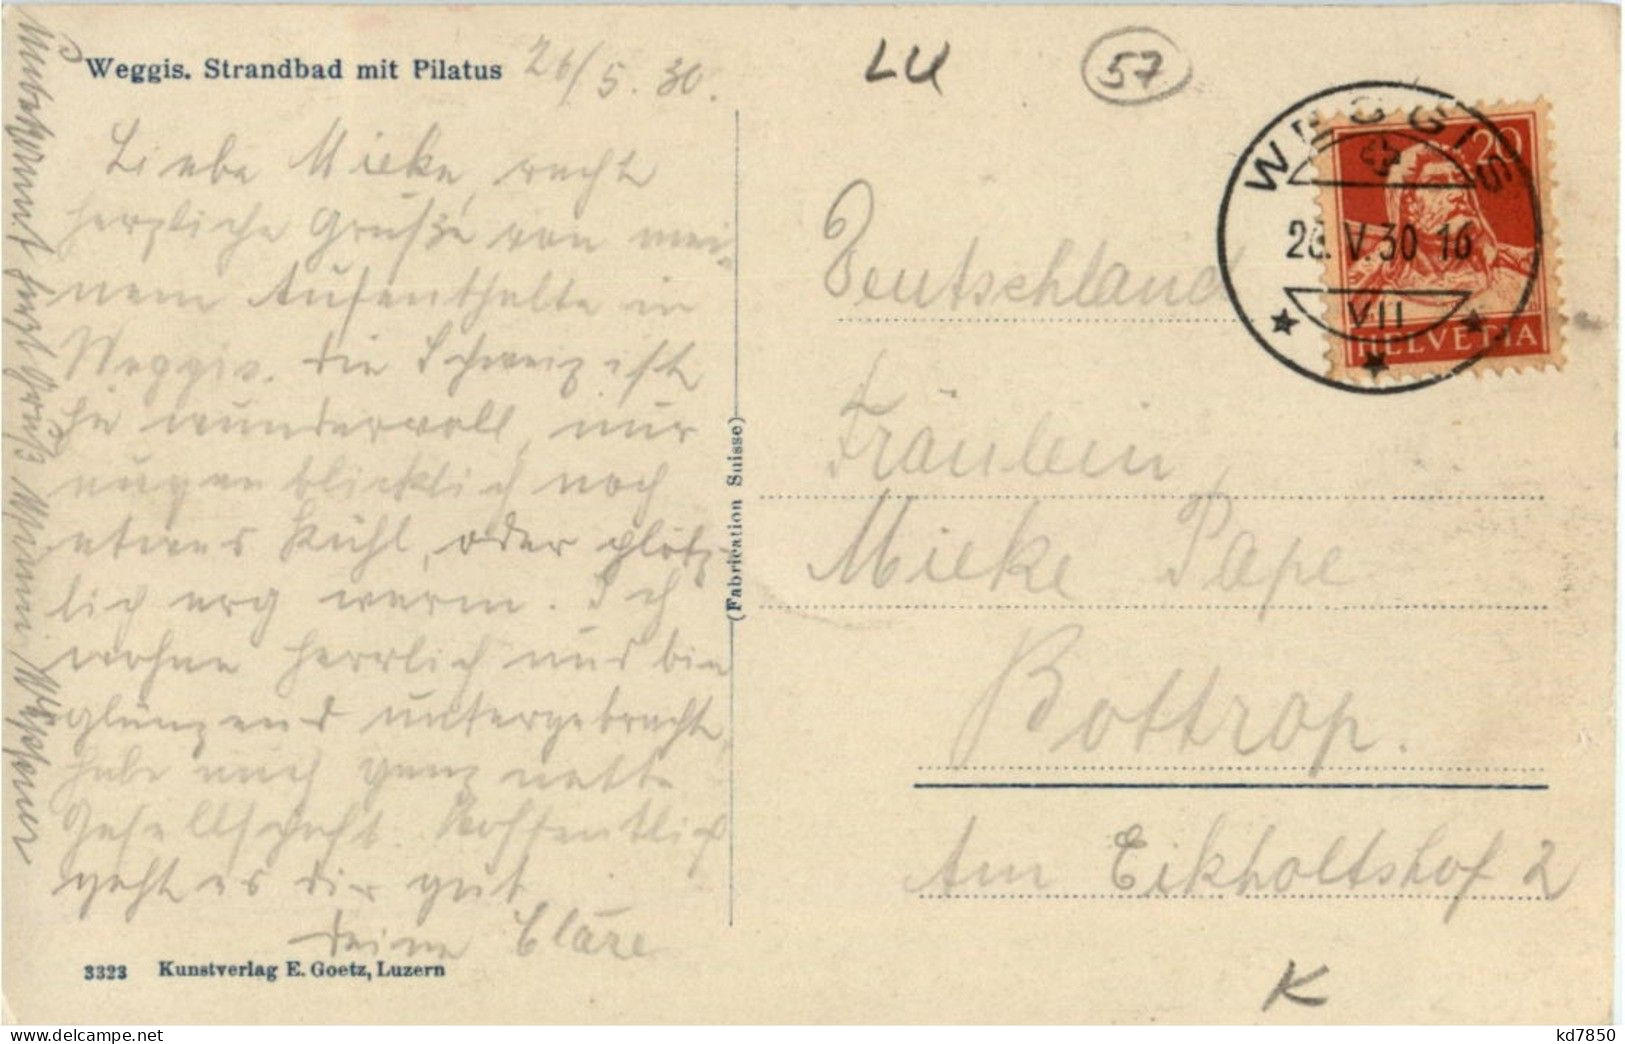 Weggis. Strandbad mit Pilatus
26/5.30.
LU
57
Liebe Mieke, recht
herzliche Grüße von mei-
nem Aufenthalte in
Weggis. Die Schweiz ist
ja wundervoll, nur
augenblicklich noch
etwas kühl, oder plötz-
lich arg warm. Ich
wohne herrlich und bin
glänzend untergebracht,
habe auch ganz nette
Gesellschaft. Hoffentlich
geht es dir gut
Deine Cläre
Unbekannt herzl. Grüße
3323 Kunstverlag E. Goetz, Luzern
(Fabrication Suisse)
WEGGIS
26.V.30 16
VII
20
HELVETIA
Deutschland
Fräulein
Mieke Pape
Bottrop.
Am Eikholtshof 2
K
kd7850